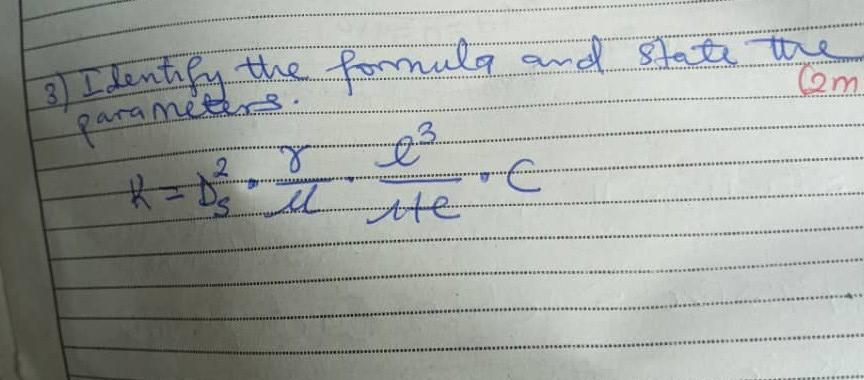 3) Identify the formula and state the
parameters. (2m
K = D_s^2 · γ/μ · e^3/1+e · C